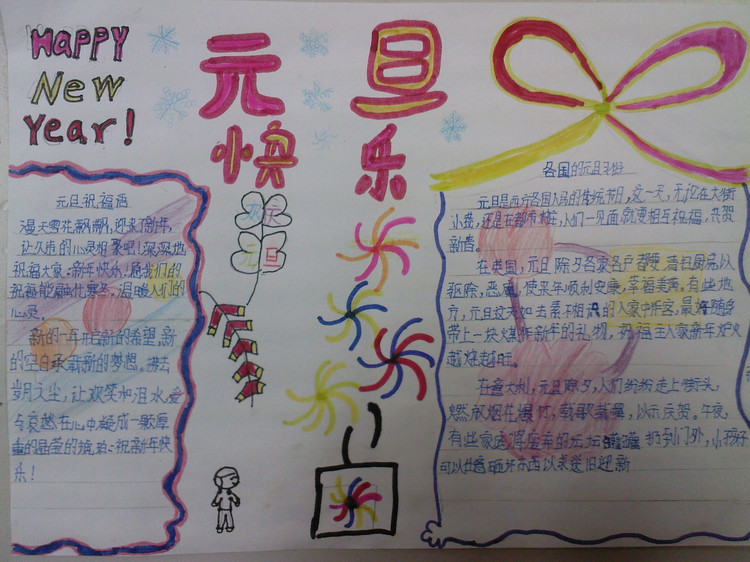 HAPPY
New
Year!
元旦
快乐
欢庆
元旦
元旦祝福语
漫天雪花飘飘,迎来了新年,
让久违的心灵相聚吧!深深地
祝福大家:新年快乐!愿我们的
祝福能融化寒冬,温暖人们的
心灵。
新的一年开启新的希望,新
的空白承载新的梦想。拂去
岁月之尘,让欢笑和泪水、爱
与哀愁在心中凝成一颗厚
重的晶莹的琥珀:祝新年快
乐!
各国的元旦习俗
元旦是西方各国人民的传统节日,这一天,无论在大街
小巷,还是在都市村庄,人们一见面就要相互祝福,共贺
新春。
在英国,元旦除夕各家各户都要清扫厨房以
驱除恶魔,使来年顺利安康,幸福美满。有些地
方,元旦这天如去素不相识的人家中作客,最好随身
带上一块煤作新年的礼物,祝福主人家新年炉火
越烧越旺。
在意大利,元旦除夕,人们纷纷走上街头,
燃放烟花爆竹,载歌载舞,以示庆贺。午夜,
有些家庭将屋里的坛坛罐罐扔到门外,小孩子
可以任意砸坏东西以表送旧迎新